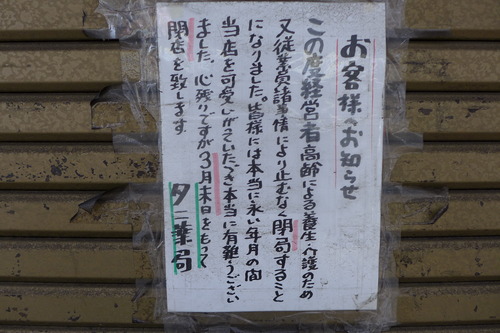 お客様へお知らせ
この度経営者高齢による養生・介護のため
又従業員諸事情により止むなく閉局すること
になりました。皆様には本当に永い年月の間
当店を可愛いがっていただき本当に有難うござい
ました。心残りですが3月末日をもって
閉店を致します
夕二薬局